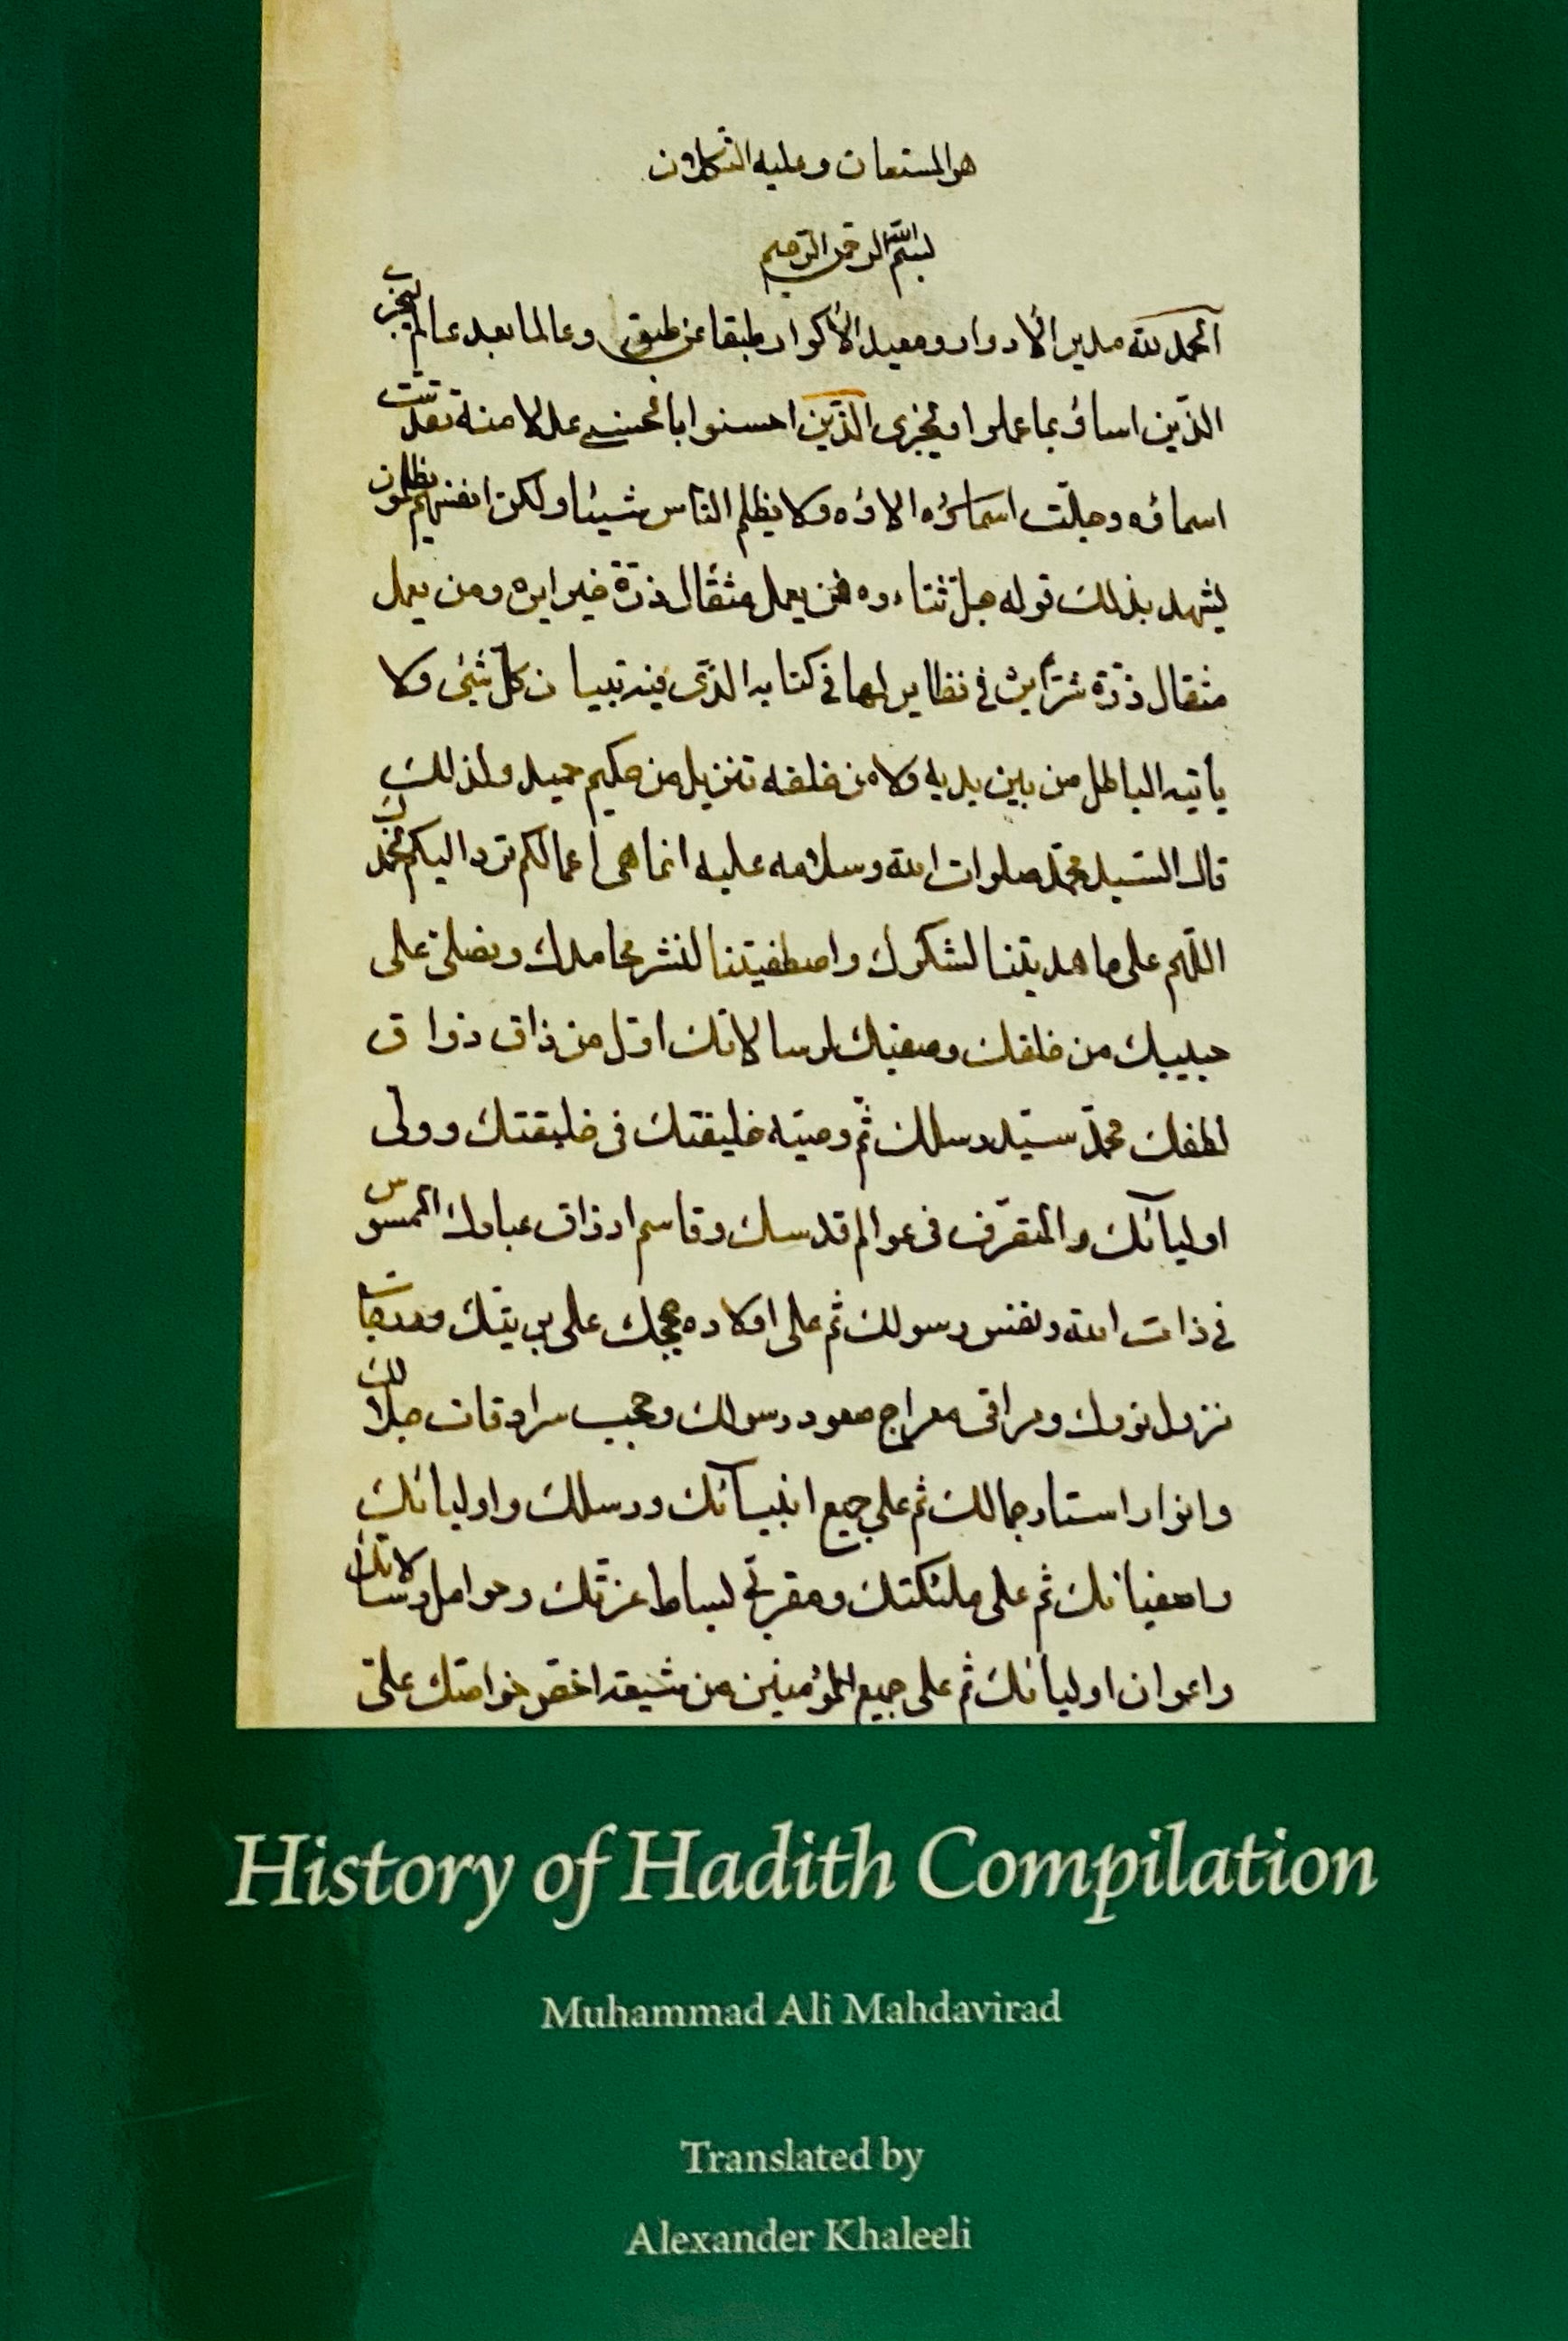 هو المستعان وعليه التكلان
بسم الله الرحمن الرحيم
الحمد لله مدير الادوار ومعيد الأكوار طبقا عن طبق وعالما بعد عالم ليجزى
الذين اساؤ بما عملوا ويجزى الذّين احسنوا بالحسنى عدلا منه تقدّست
اسماؤه وجلّت الاؤه ولا يظلم النّاس شيئا ولكن انفسهم يظلمون
يشهد بذلك قوله جلّ ثناءوه فمن يعمل مثقال ذرّة خيرا يره ومن يعمل
مثقال ذرّة شرّا يره في نظاير لها في كتابه الذّى فيه تبيان كلّ شئ ولا
يأتيه الباطل من بين يديه ولا من خلفه تنزيل من حكيم حميد ولذلك
قال السّيد محمّد صلوات الله وسلامه عليه انما هى اعمالكم ترد اليكم نحمدك
اللّهم على ما هديتنا لشكرك واصطفيتنا لنشر محامدك ونصلّى على
حبيبك من خلقك وصفيك لرسالاتك اوّل من ذاق ذواق
لطفك محمّد سيّد رسلك ثمّ وصيّه خليفتك فى خليقتك وولى
اوليائك والمتصرّف فى عوالم قدسك وقاسم ارزاق عبادك الممسوس
في ذات الله ونفس رسولك ثم على اولاده حججك على بريتك
نزول نورك ومراقى معراج صعود رسولك وحجب سرادقات جلالك
وانوار استار جمالك ثم على جميع انبيائك ورسلك واوليائك
واصفيائك ثم على ملئكتك ومقربى بساط عزّتك وحوامل رسالاتك
واعوان اوليائك ثم على جميع المؤمنين من شيعة اخصّ خواصك علىّ
History of Hadith Compilation
Muhammad Ali Mahdavirad
Translated by
Alexander Khaleeli